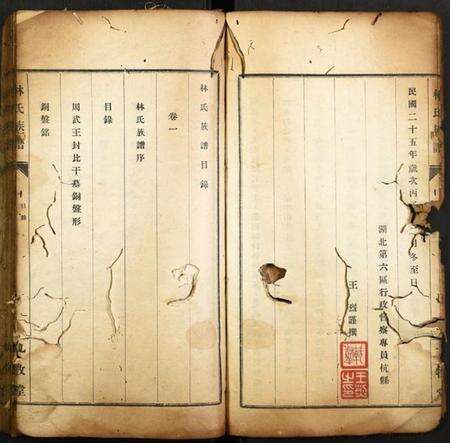 民國二十五年歲次丙子冬至日
湖北第六區行政督察專員杭縣
王 謹撰
林氏族譜目錄
卷一
林氏族譜序
目錄
周武王封比干墓銅盤形
銅盤銘
林氏族譜
目錄